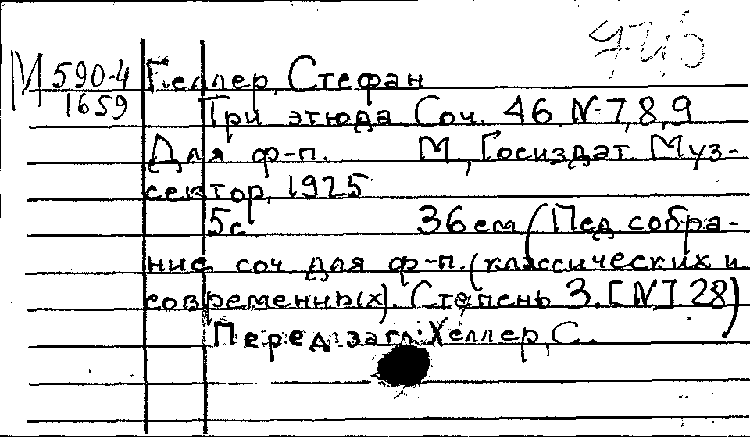 М 590-4 Геллер, Стефан
1659 Три этюда Соч. 46 N-7,8,9
Для ф-п. М, Госиздат Муз-
сектор, 1925
5с 36см (Пед собра-
ние соч для ф-п. (классических и
современных). Степень 3. [N] 28)
Перед загл: Хеллер, С.